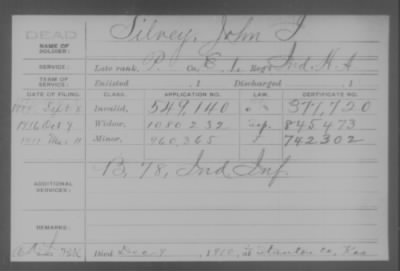 DEAD
NAME OF SOLDIER: Silvey, John
SERVICE: Late rank, P. Co. E, 1, Reg't Ind. H. A
TERM OF SERVICE: Enlisted , 1 Discharged , 1
DATE OF FILING. CLASS. APPLICATION NO. LAW. CERTIFICATE NO.
Sept Invalid, 549,140 371,720
1916 Oct 9 Widow, 1080232 845473
Minor, 960,365 742302
ADDITIONAL SERVICES: B, 78, Ind Inf
REMARKS:
Died 1910, at Stanton Co, Kas